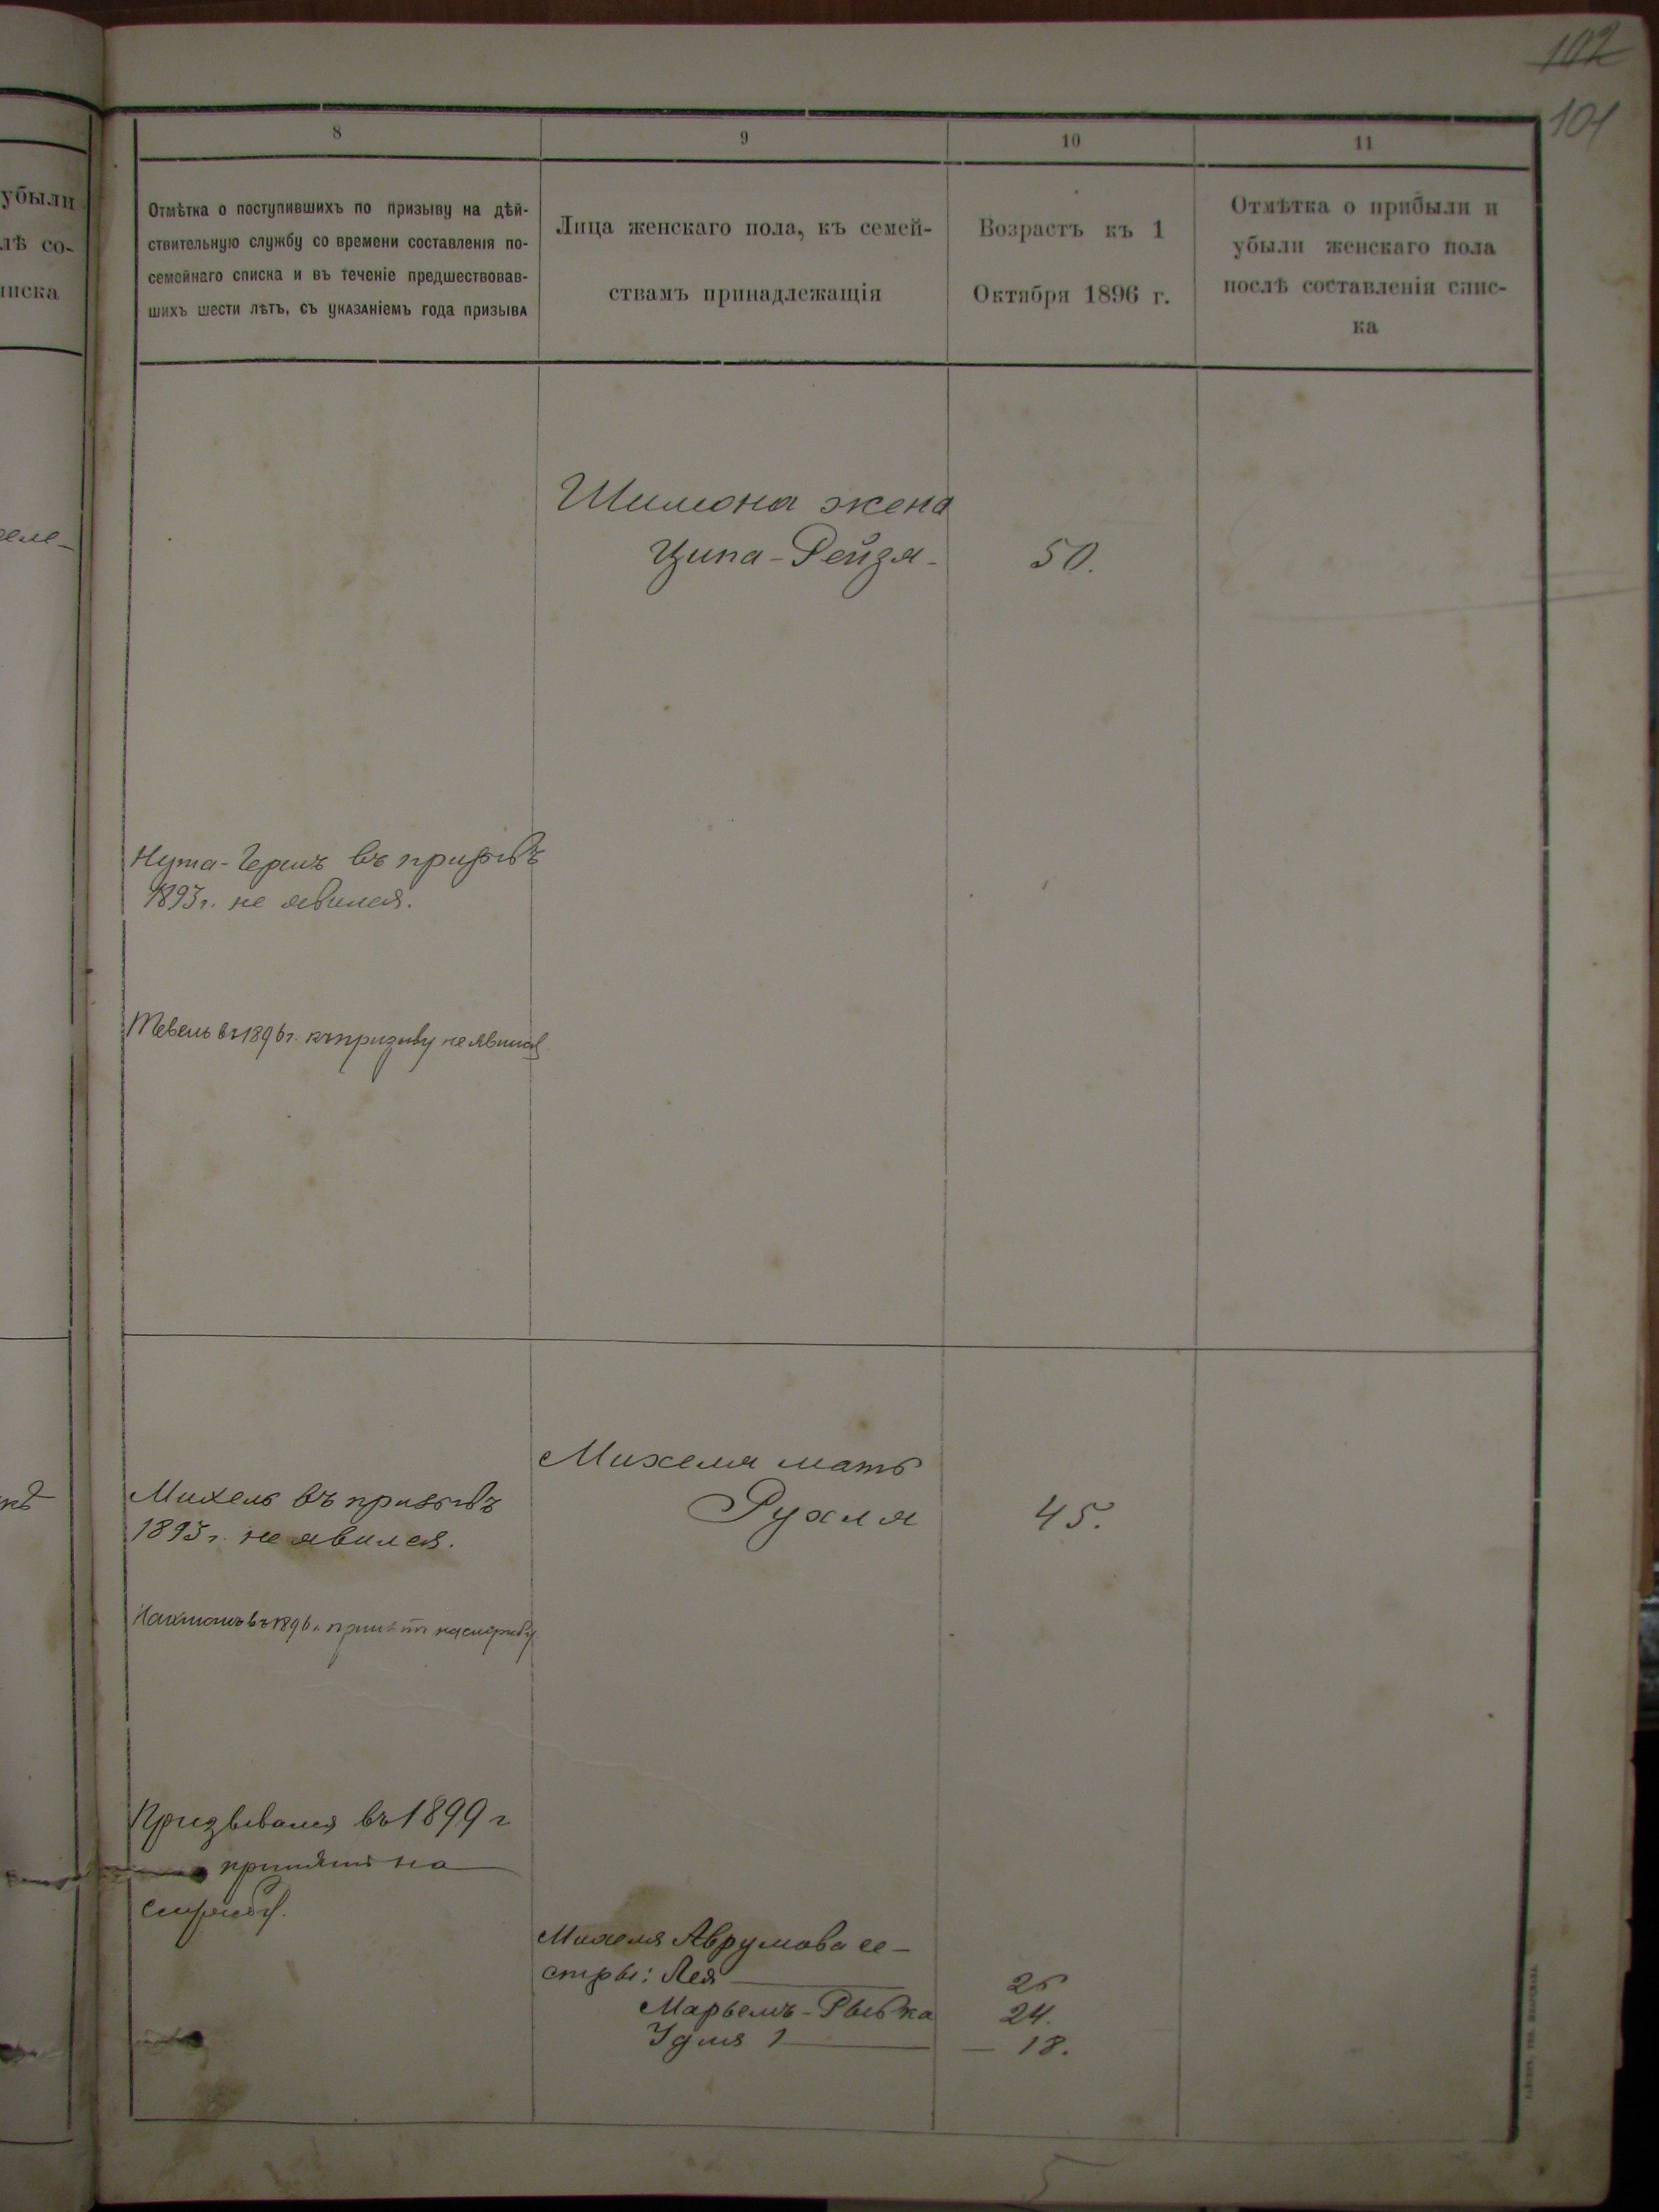 102
101
убыли
лѣ со-
писка
8
9
10
11
Отмѣтка о поступившихъ по призыву на дѣй-
ствительную службу со времени составленія по-
семейнаго списка и въ теченіе предшествовав-
шихъ шести лѣтъ, съ указаніемъ года призыва
Лица женскаго пола, къ семей-
ствамъ принадлежащія
Возрастъ къ 1
Октября 1896 г.
Отмѣтка о прибыли и
убыли женскаго пола
послѣ составленія спис-
ка
Шимона жена
Ципа-Рейзя- 50.
Нута-Гершъ въ призывъ
1893г. не явился.
Тевель въ 1896г. къ призыву не явился
Михеля мать
Рухля 45.
Михель въ призывъ
1893г. не явился.
въ 1896г. принятъ на службу
Призывался въ 1899 г
принятъ на
службу.
Михеля Аврумова се-
стры: Лея
Марьемъ-Рывка 24.
18.